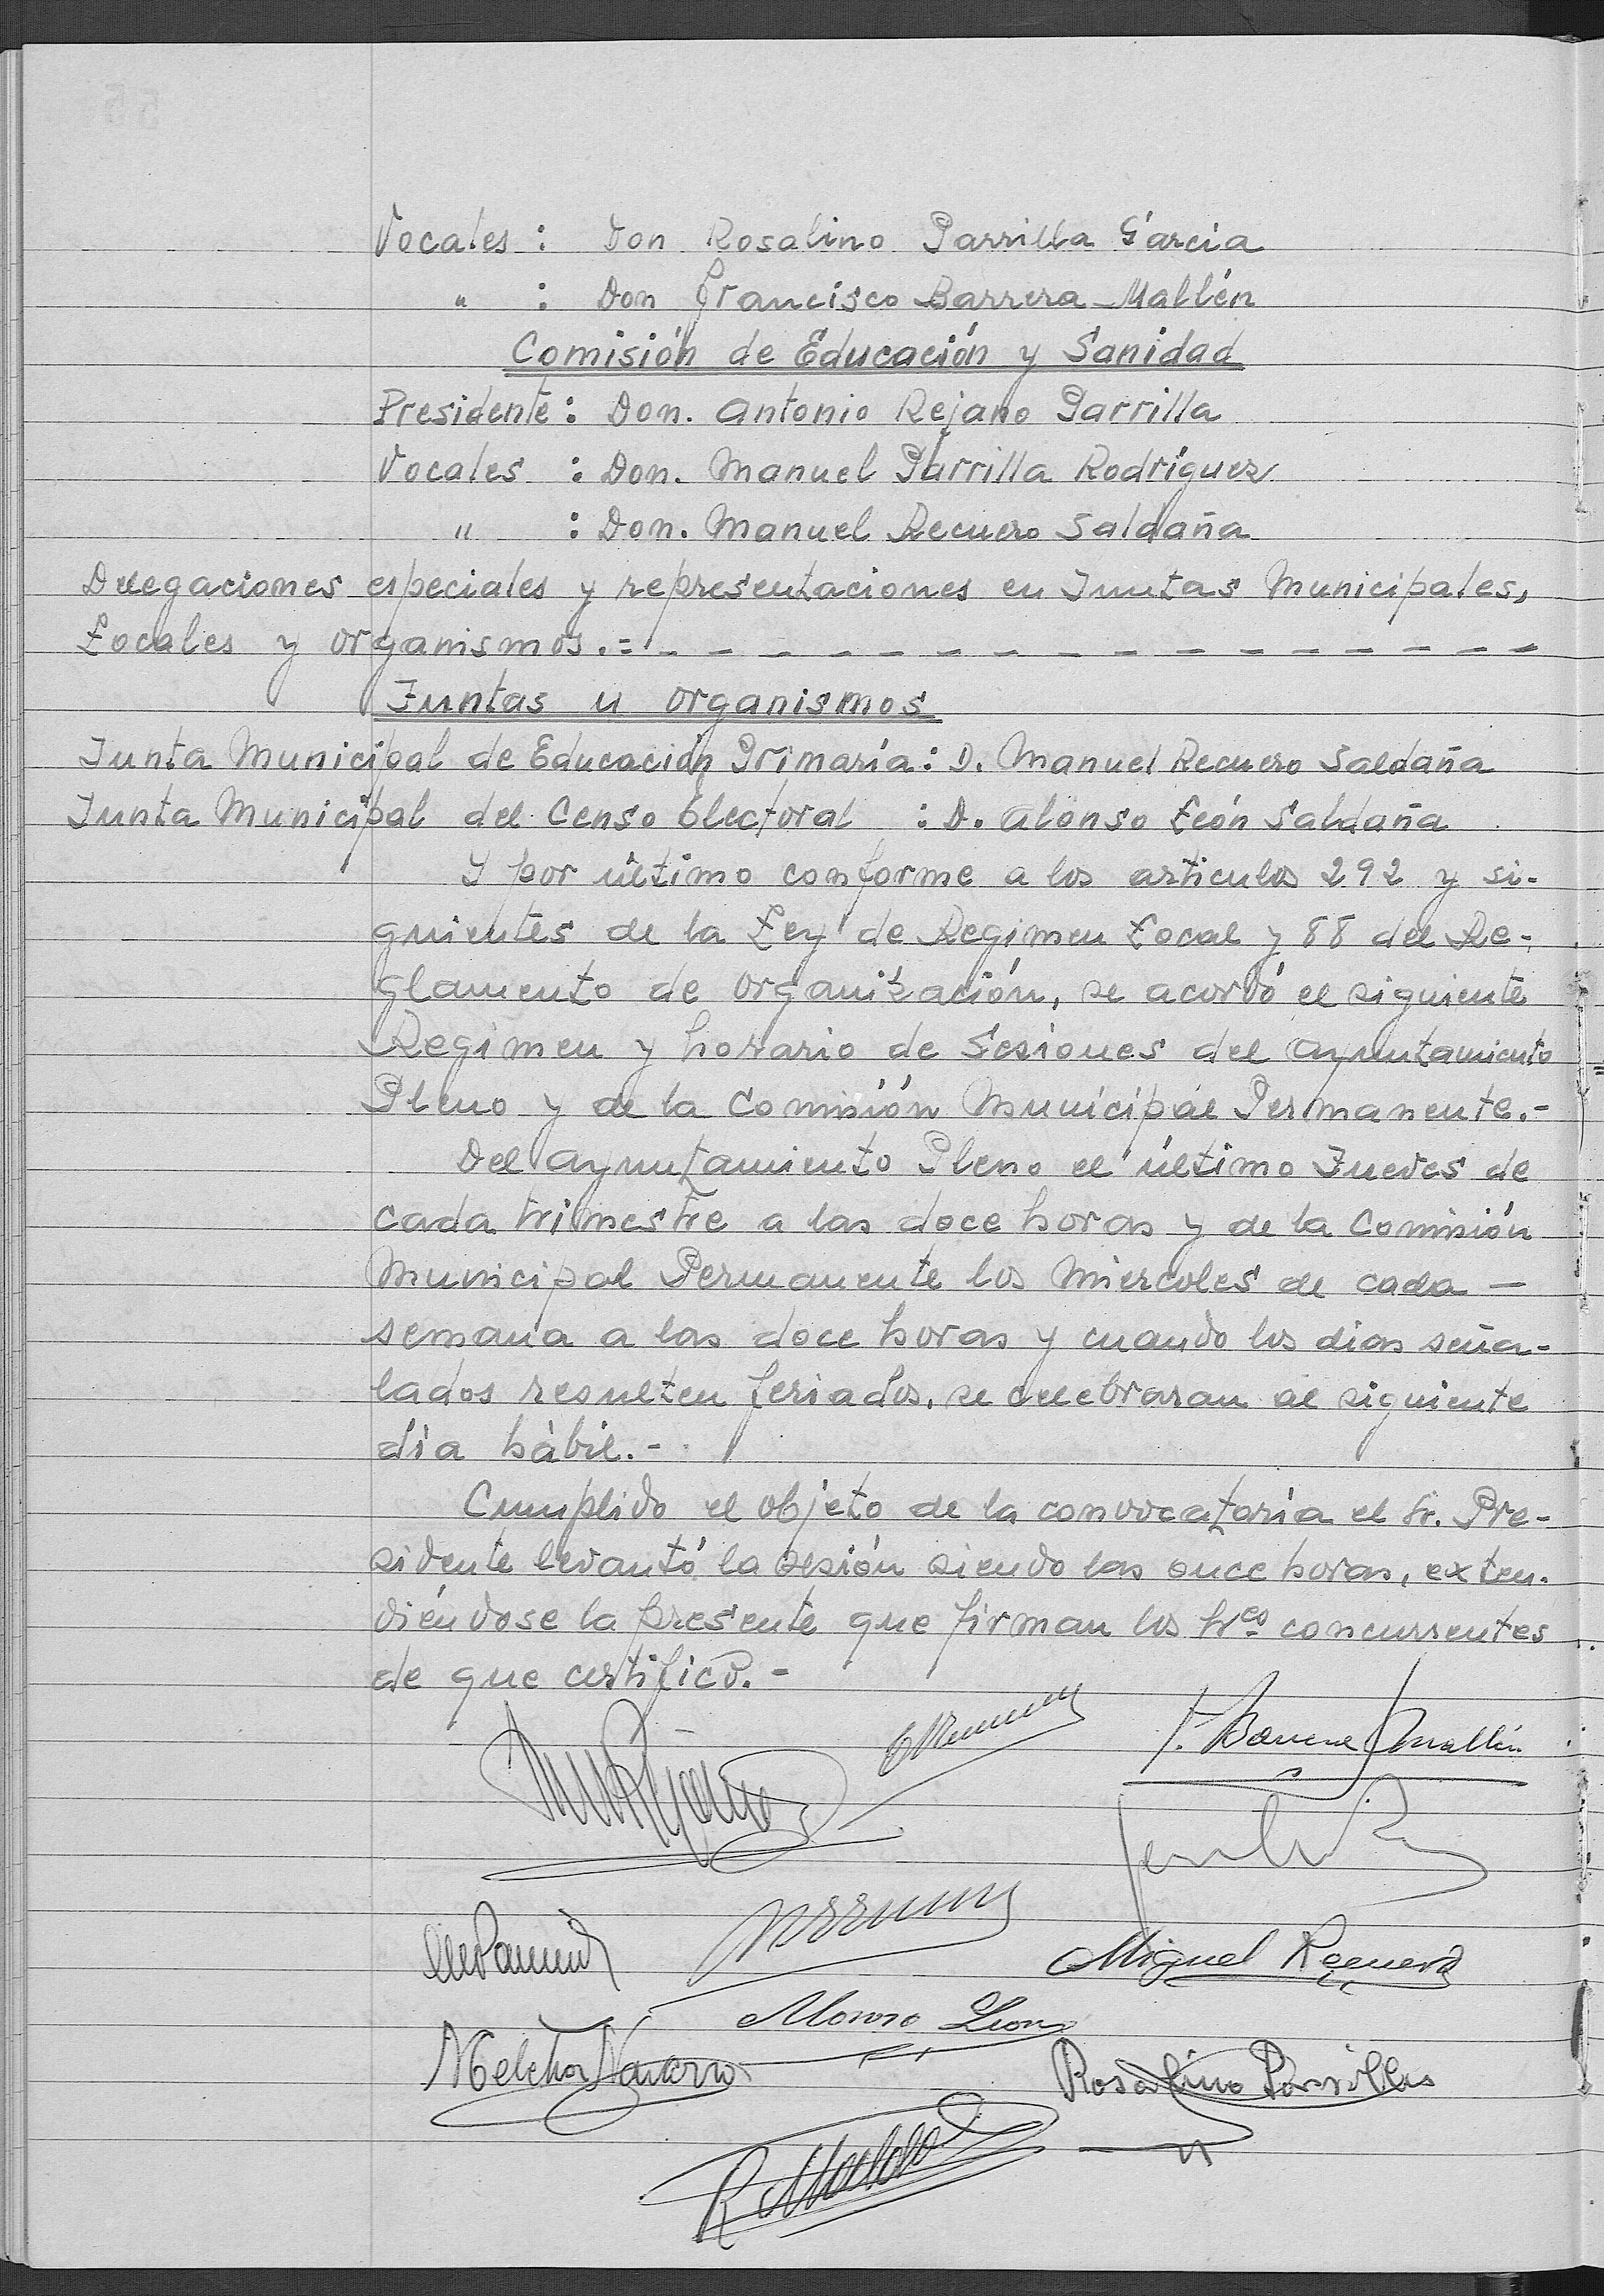 Vocales : Don Rosalino Parrilla García
" : Don Francisco Barrera Mallén
Comisión de Educación y Sanidad
Presidente : Don. Antonio Rejano Parrilla
Vocales : Don. Manuel Parrilla Rodríguez
" : Don. Manuel Recuero Saldaña
Delegaciones especiales y representaciones en Juntas Municipales,
Locales y organismos.=- - - - - - - - - - - - - - - -
Juntas u organismos
Junta Municipal de Educación Primaria : D. Manuel Recuero Saldaña
Junta Municipal del Censo Electoral : D. Alonso León Saldaña
Y por último conforme a los articulos 292 y si-
guientes de la Ley de Regimen Local y 88 del Re-
glamento de organización, se acordó el siguiente
Regimen y horario de Sesiones del Ayuntamiento
Pleno y de la Comisión Municipal Permanente.-
Del Ayuntamiento Pleno el último Jueves de
cada trimestre a las doce horas y de la Comisión
Municipal Permanente los Miercoles de cada -
semana a las doce horas y cuando los dias seña-
lados resulten feriados, se celebraran al siguiente
día hábil.-
Cumplido el objeto de la convocatoria el Sr. Pre-
sidente levantó la sesión siendo las once horas, exten-
diéndose la presente que firman los Sres concurrentes
de que certifico.-
F. Barrera Mallén
Miguel Recuero
Alonso Leon
Melchor Navarro
Rosalino Parrilla